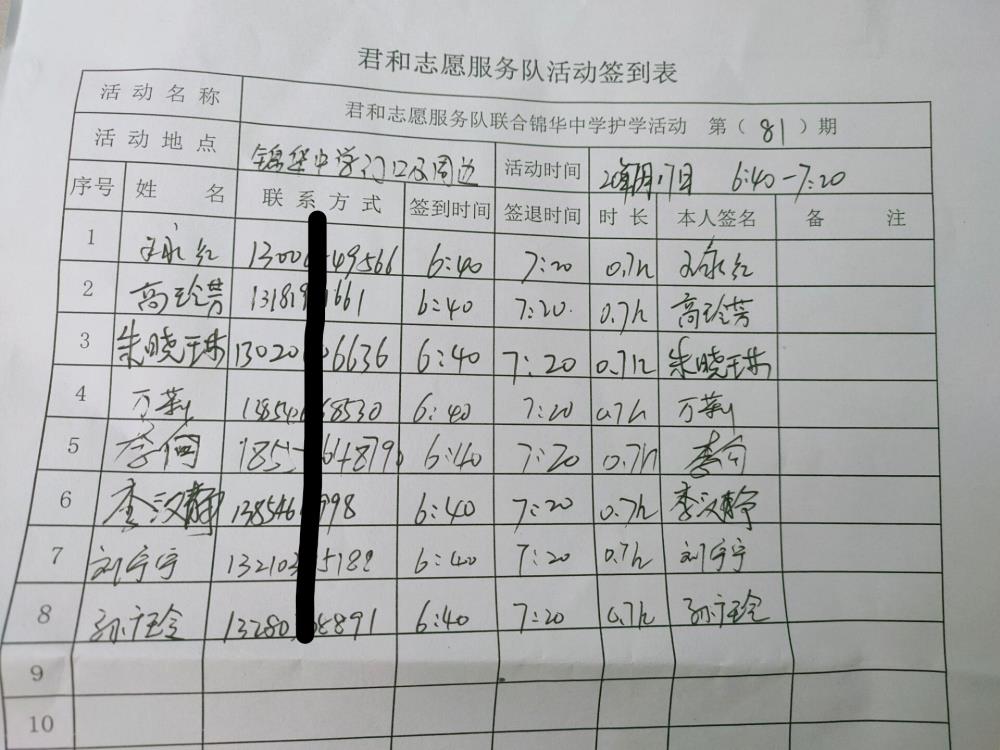 君和志愿服务队活动签到表
活动名称 君和志愿服务队联合锦华中学护学活动 第（81）期
活动地点 锦华中学门口及周边 活动时间 17日 6:40-7:20
序号 姓名 联系方式 签到时间 签退时间 时长 本人签名 备注
1 王永红 1300 49566 6:40 7:20 0.7h 王永红
2 高珍芳 13181 1661 6:40 7:20 0.7h 高珍芳
3 朱晓琳 13020 6636 6:40 7:20 0.7h 朱晓琳
4 万莉 8530 6:40 7:20 0.7h 万莉
5 李 6:40 7:20 0.7h 李
6 李汉静 138546 998 6:40 7:20 0.7h 李汉静
7 刘宁宁 13210 5188 6:40 7:20 0.7h 刘宁宁
8 孙 13280 5891 6:40 7:20 0.7h 孙
9
10